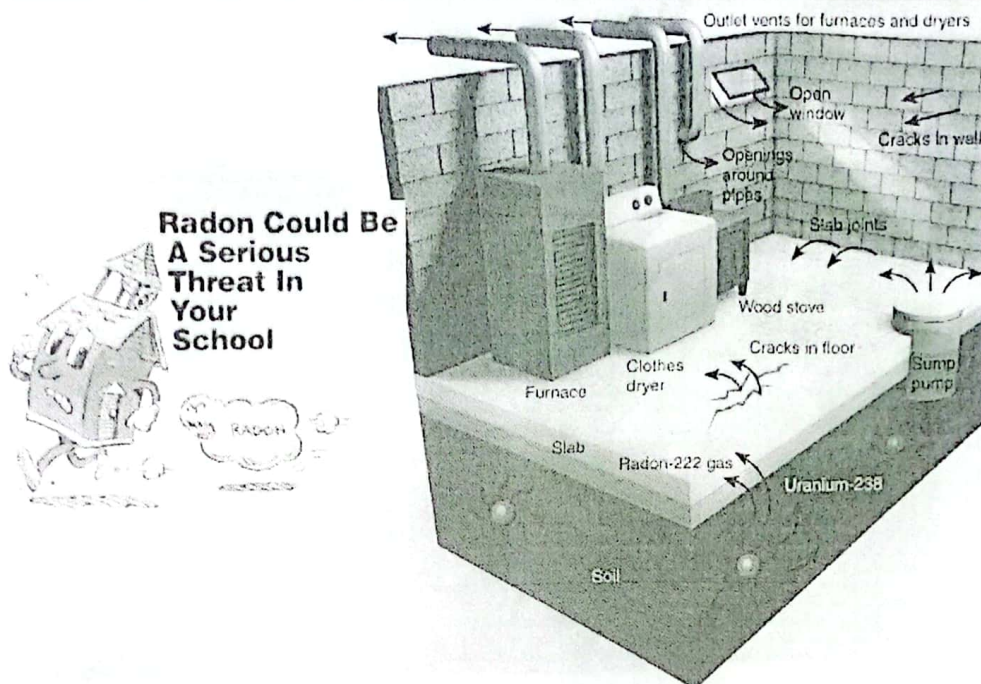 Radon Could Be
A Serious
Threat In
Your
School
RADON
Outlet vents for furnaces and dryers
Open
window
Cracks in wall
Openings
around
pipes
Slab joints
Wood stove
Cracks in floor
Clothes
dryer
Furnace
Sump
pump
Slab
Radon-222 gas
Uranium-238
Soil